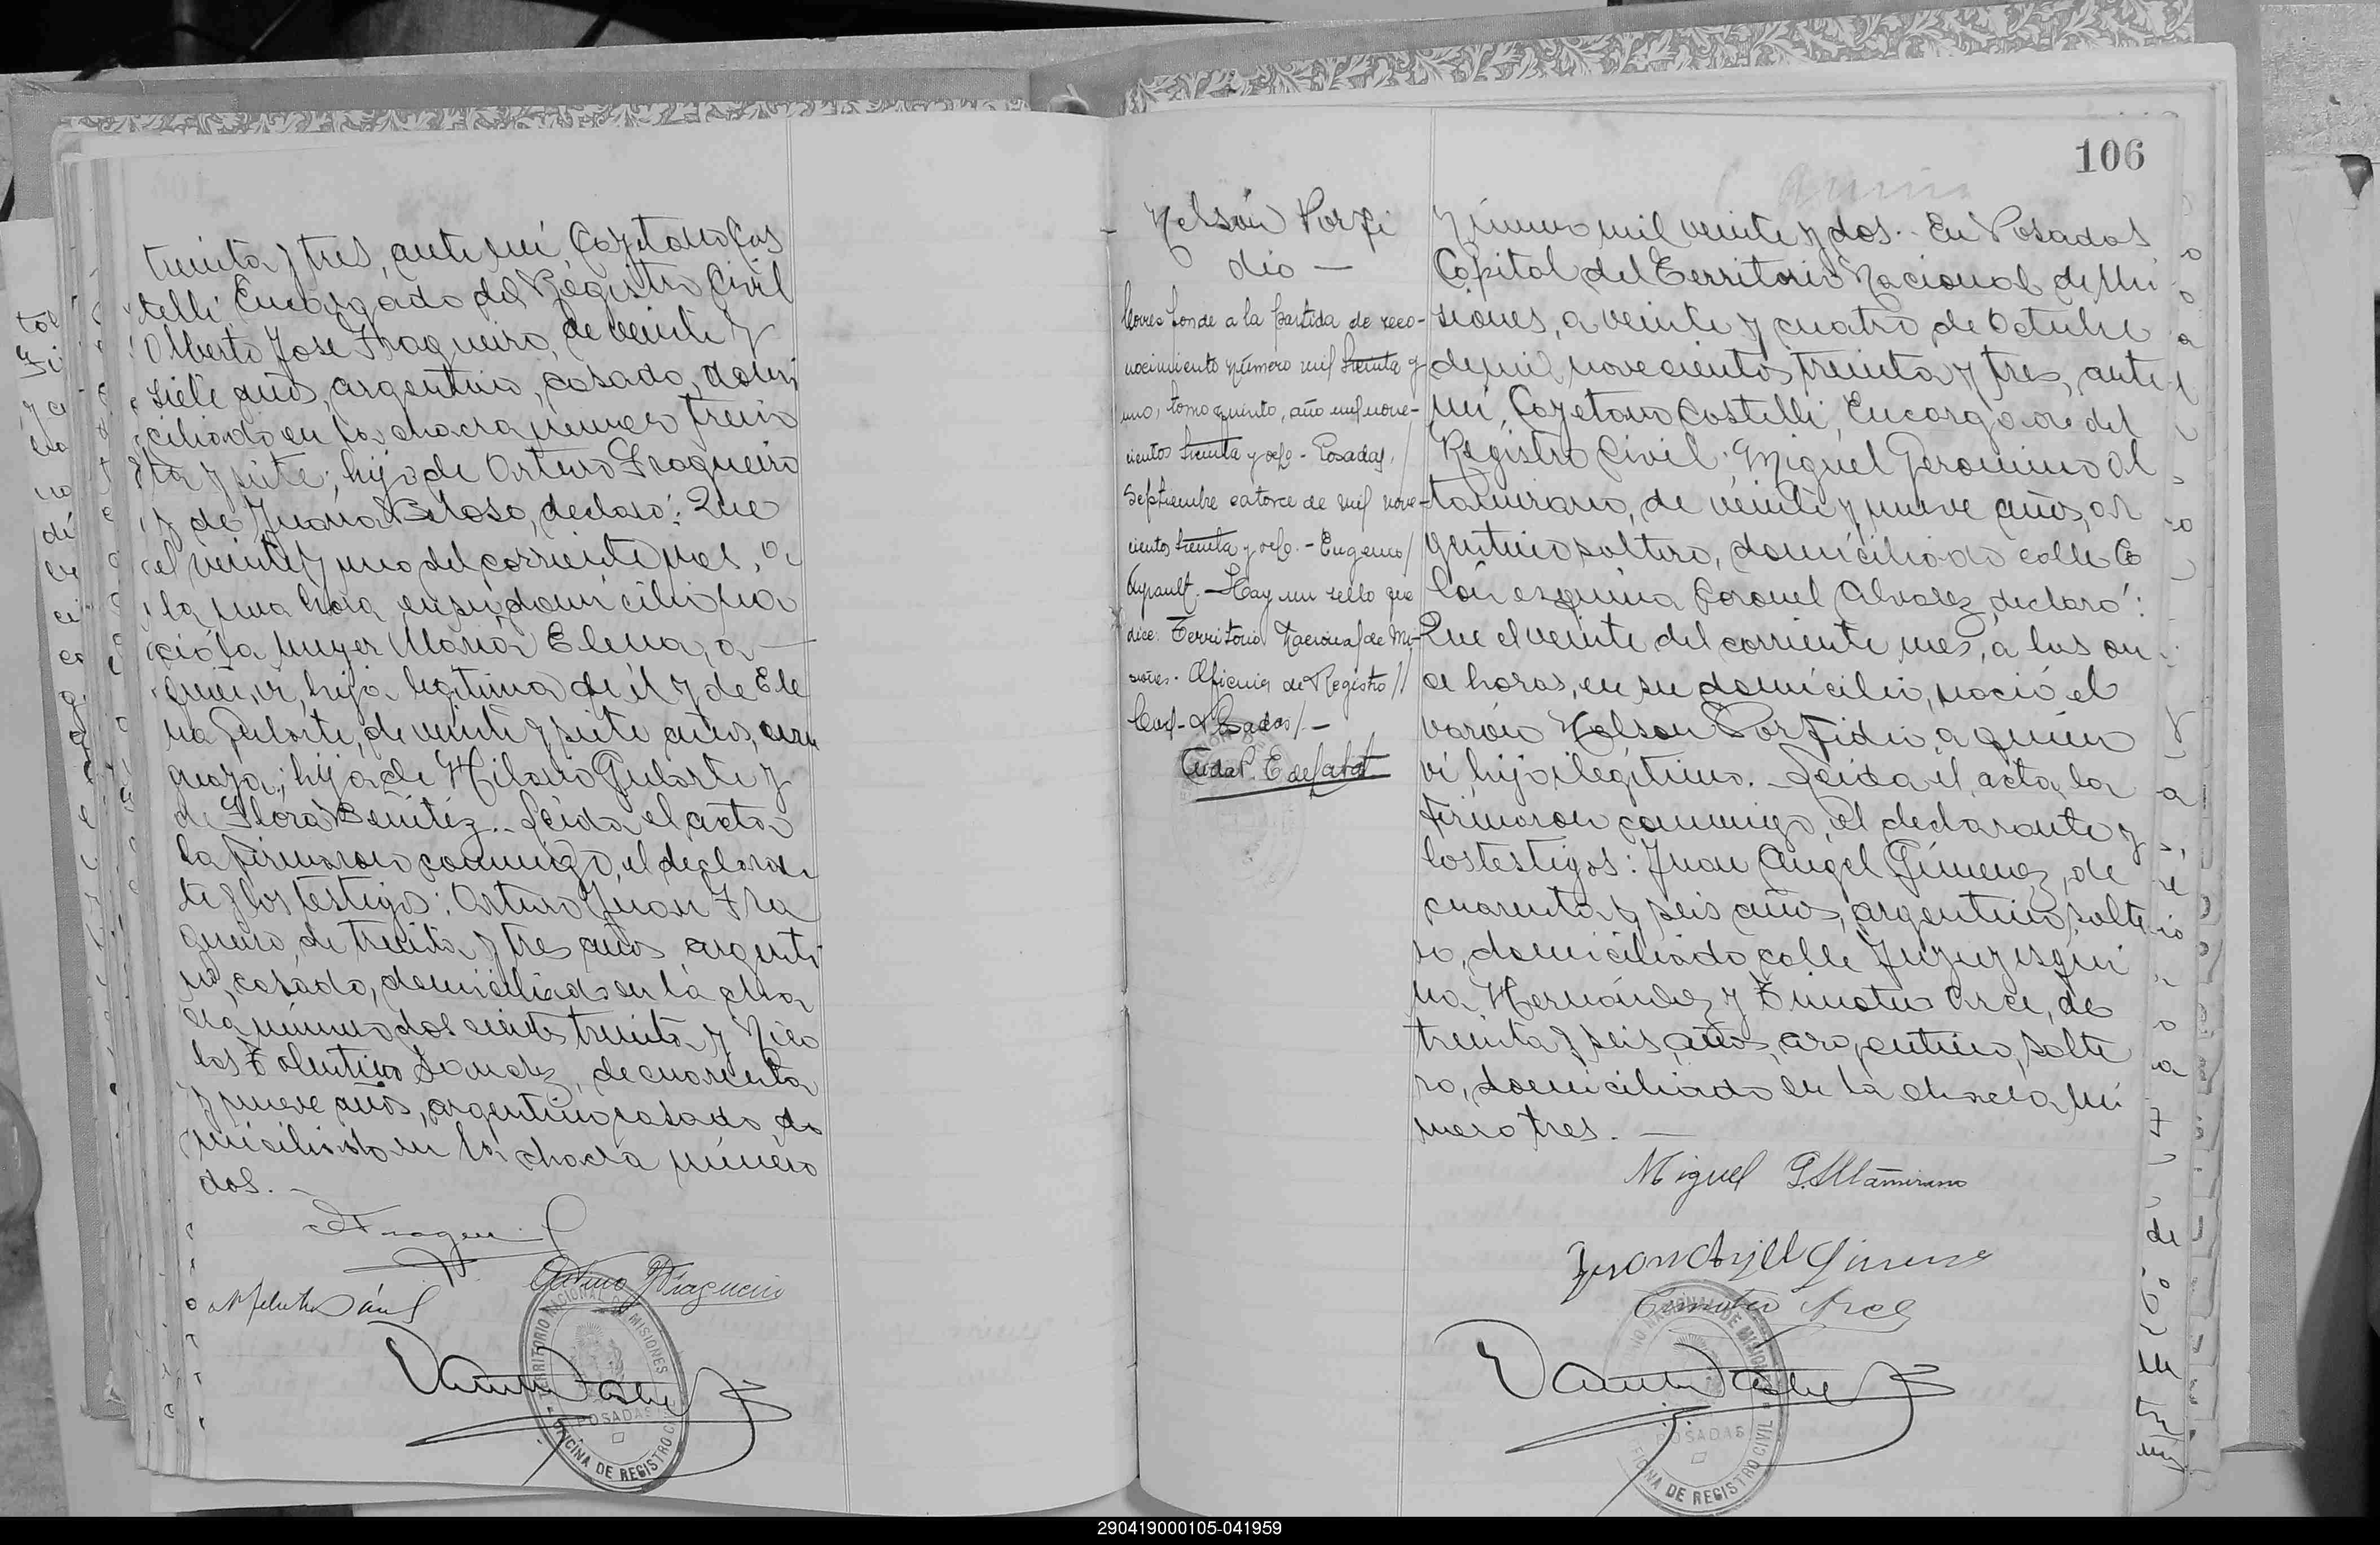 treinta y tres, ante mí, Cayetano Cas
telli Encargado del Registro Civil
Alberto José Fraqueiro, de veinte y
siete años, argentino, casado, domi
ciliado en la chacra número trein
ta y siete; hijo de Arturo Fraqueiro
y de Juana Beloso, declaró: Que
el veinte y uno del corriente mes, a
la una hora, en su domicilio na
ció la mujer María Elena, a
quien vi, hija legítima de él y de Ele
na Gularte, de veinte y siete años, uru
guaya; hija de Hilario Gularte y
de Flora Benitez. Leída el acta
la firmaron conmigo, el declaran
te y los testigos: Arturo Juan Fra
queiro, de treinta y tres años argenti
no, casado, domiciliado en la cha
cra número doscientos treinta y Nico
las Tolentino Sanchez, de cuarenta
y nueve años, argentino casado, do
miciliado en la chacra número
dos.
Arturo Fraqueiro
TERRITORIO NACIONAL DE MISIONES
POSADAS
OFICINA DE REGISTRO CIVIL
106
Nelson Porfi
dio —
Corresponde a la partida de reco-
nocimiento número mil treinta y
uno, tomo quinto, año mil nove-
cientos treinta y ocho - Posadas,
Septiembre catorce de mil nove-
cientos treinta y ocho. - Eugenio
Ayrault. - Hay un sello que
dice: Territorio Nacional de Mi-
siones. Oficina de Registro
Civil - Posadas -
Número mil veinte y dos. En Posadas
Capital del Territorio Nacional de Mi
siones, a veinte y cuatro de Octubre
de mil novecientos treinta y tres, ante
mí, Cayetano Castelli, Encargado del
Registro Civil: Miguel Geronimo Al
tamirano, de veinte y nueve años, ar
gentino soltero, domiciliado calle Co
lón esquina Coronel Alvarez, declaró:
Que el veinte del corriente mes, a las on
ce horas, en su domicilio, nació el
varón Nelson Porfidio, a quien
vi, hijo ilegítimo. Leída el acta, la
firmaron conmigo, el declarante y
los testigos: Juan Angel Gimenez, de
cuarenta y seis años, argentino, solte
ro, domiciliado calle Jujuy esqui
na Hernández y Timoteo Arce, de
treinta y seis años, argentino, solte
ro, domiciliado en la chacra nú
mero tres. —
Miguel G. Altamirano
Juan Angel Gimenez
Timoteo Arce
TERRITORIO NACIONAL DE MISIONES
POSADAS
OFICINA DE REGISTRO CIVIL
290419000105-041959